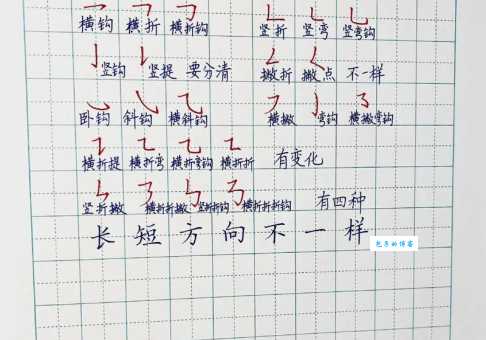 横钩 横折 横折钩 竖折 竖弯 竖弯钩
竖钩 竖提 要分清 撇折 撇点 不一样
卧钩 斜钩 横斜钩 横撇 弯钩 横撇弯钩
横折提 横折弯 横折弯钩 横折折 有变化
竖折撇 横折折撇 竖折折钩 横折折折钩 有四种
长短方向不一样